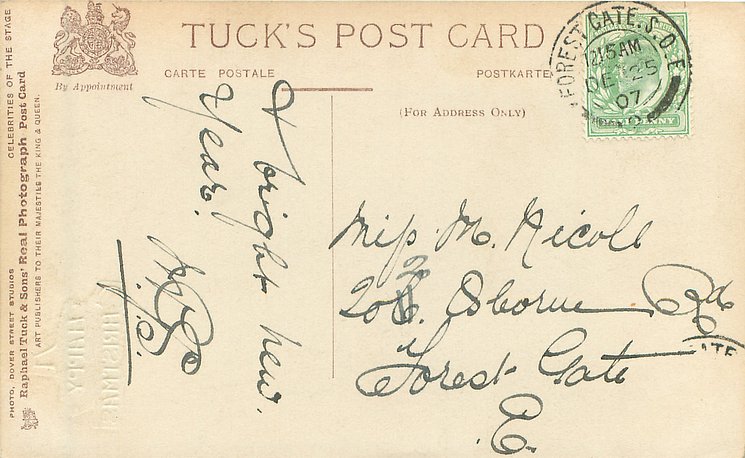 TUCK'S POST CARD
CARTE POSTALE
POSTKARTE
By Appointment
(FOR ADDRESS ONLY)
CELEBRITIES OF THE STAGE
Raphael Tuck & Sons' Real Photograph Post Card
ART PUBLISHERS TO THEIR MAJESTIES THE KING & QUEEN.
PHOTO, DOVER STREET STUDIOS
FOREST GATE. S.O.E
12.15AM
DE 25
07
PENNY
A bright new
Year.
Miss M. Nicoll
Osborne Rd
Forest Gate
E.